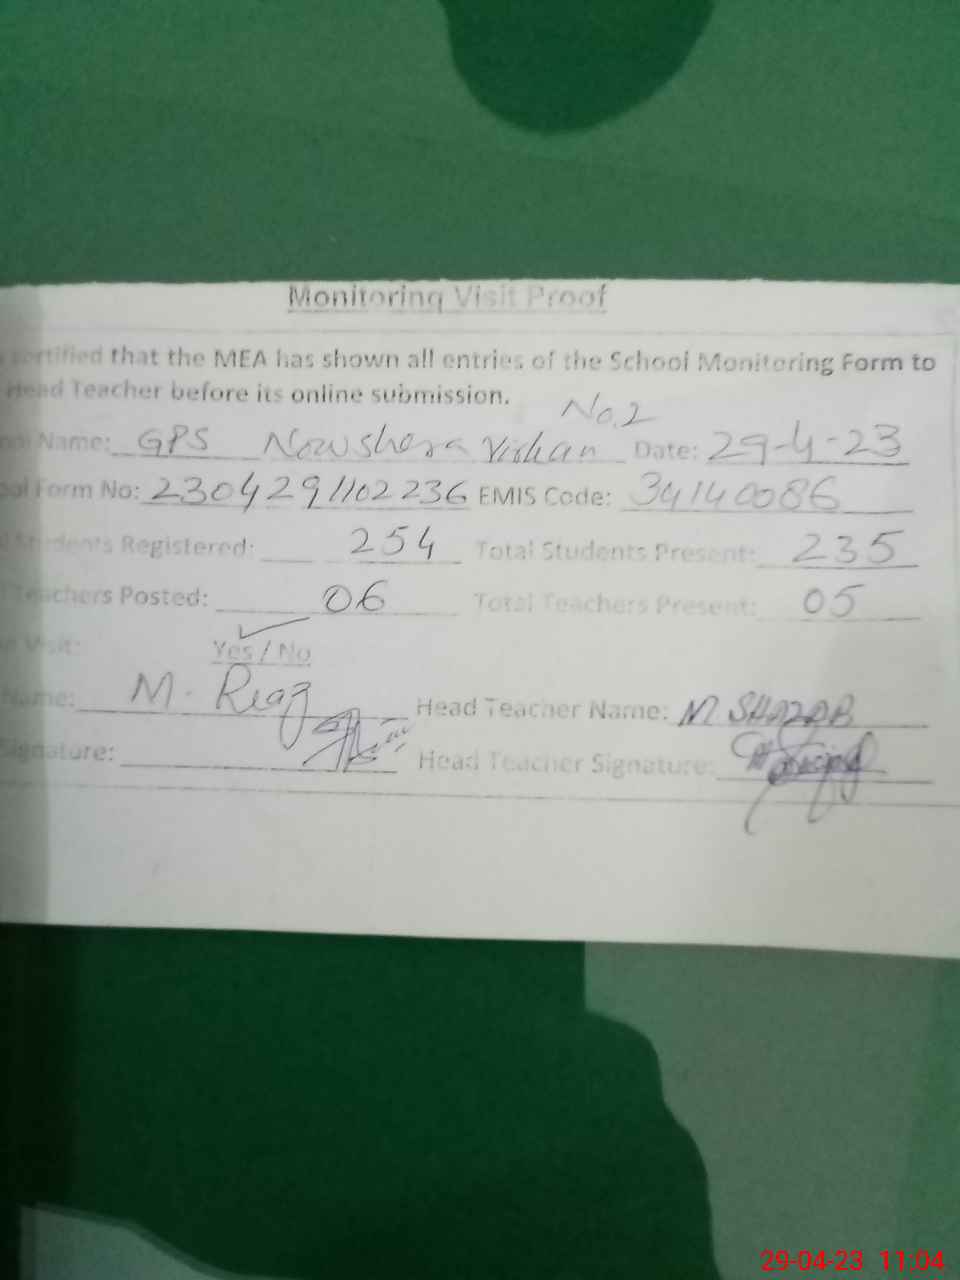 Monitoring Visit Proof
certified that the MEA has shown all entries of the School Monitoring Form to
Head Teacher before its online submission.
No.2
Name: GPS Nowshera Virkan Date: 29-4-23
Form No: 2304291102236 EMIS Code: 34140086
Students Registered: 254 Total Students Present: 235
Teachers Posted: 06 Total Teachers Present: 05
Visit: Yes / No
Name: M. Riaz Head Teacher Name: M SHAZAB
Signature: Head Teacher Signature:
29-04-23 11:04